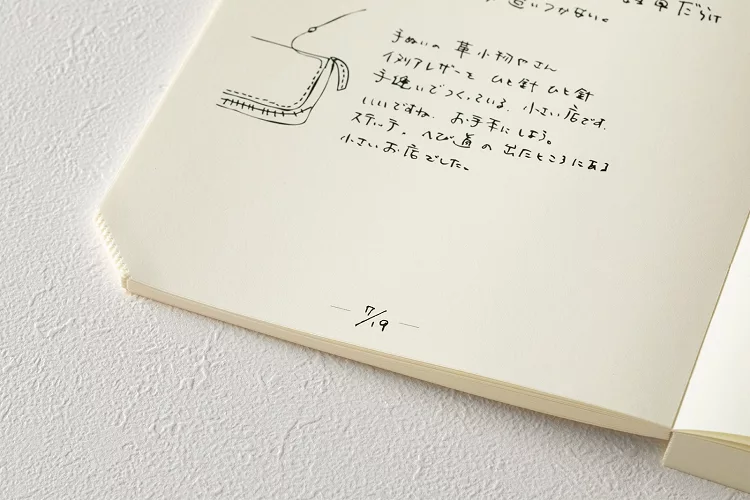 追いつかない。
手ぬいの 革小物やさん
イタリアレザーを ひと針 ひと針
手縫いでつくっている、小さい店です。
いいですね、お手本にしよう。
ステッチ。へび道の 出たところにある
小さいお店でした。
7/19